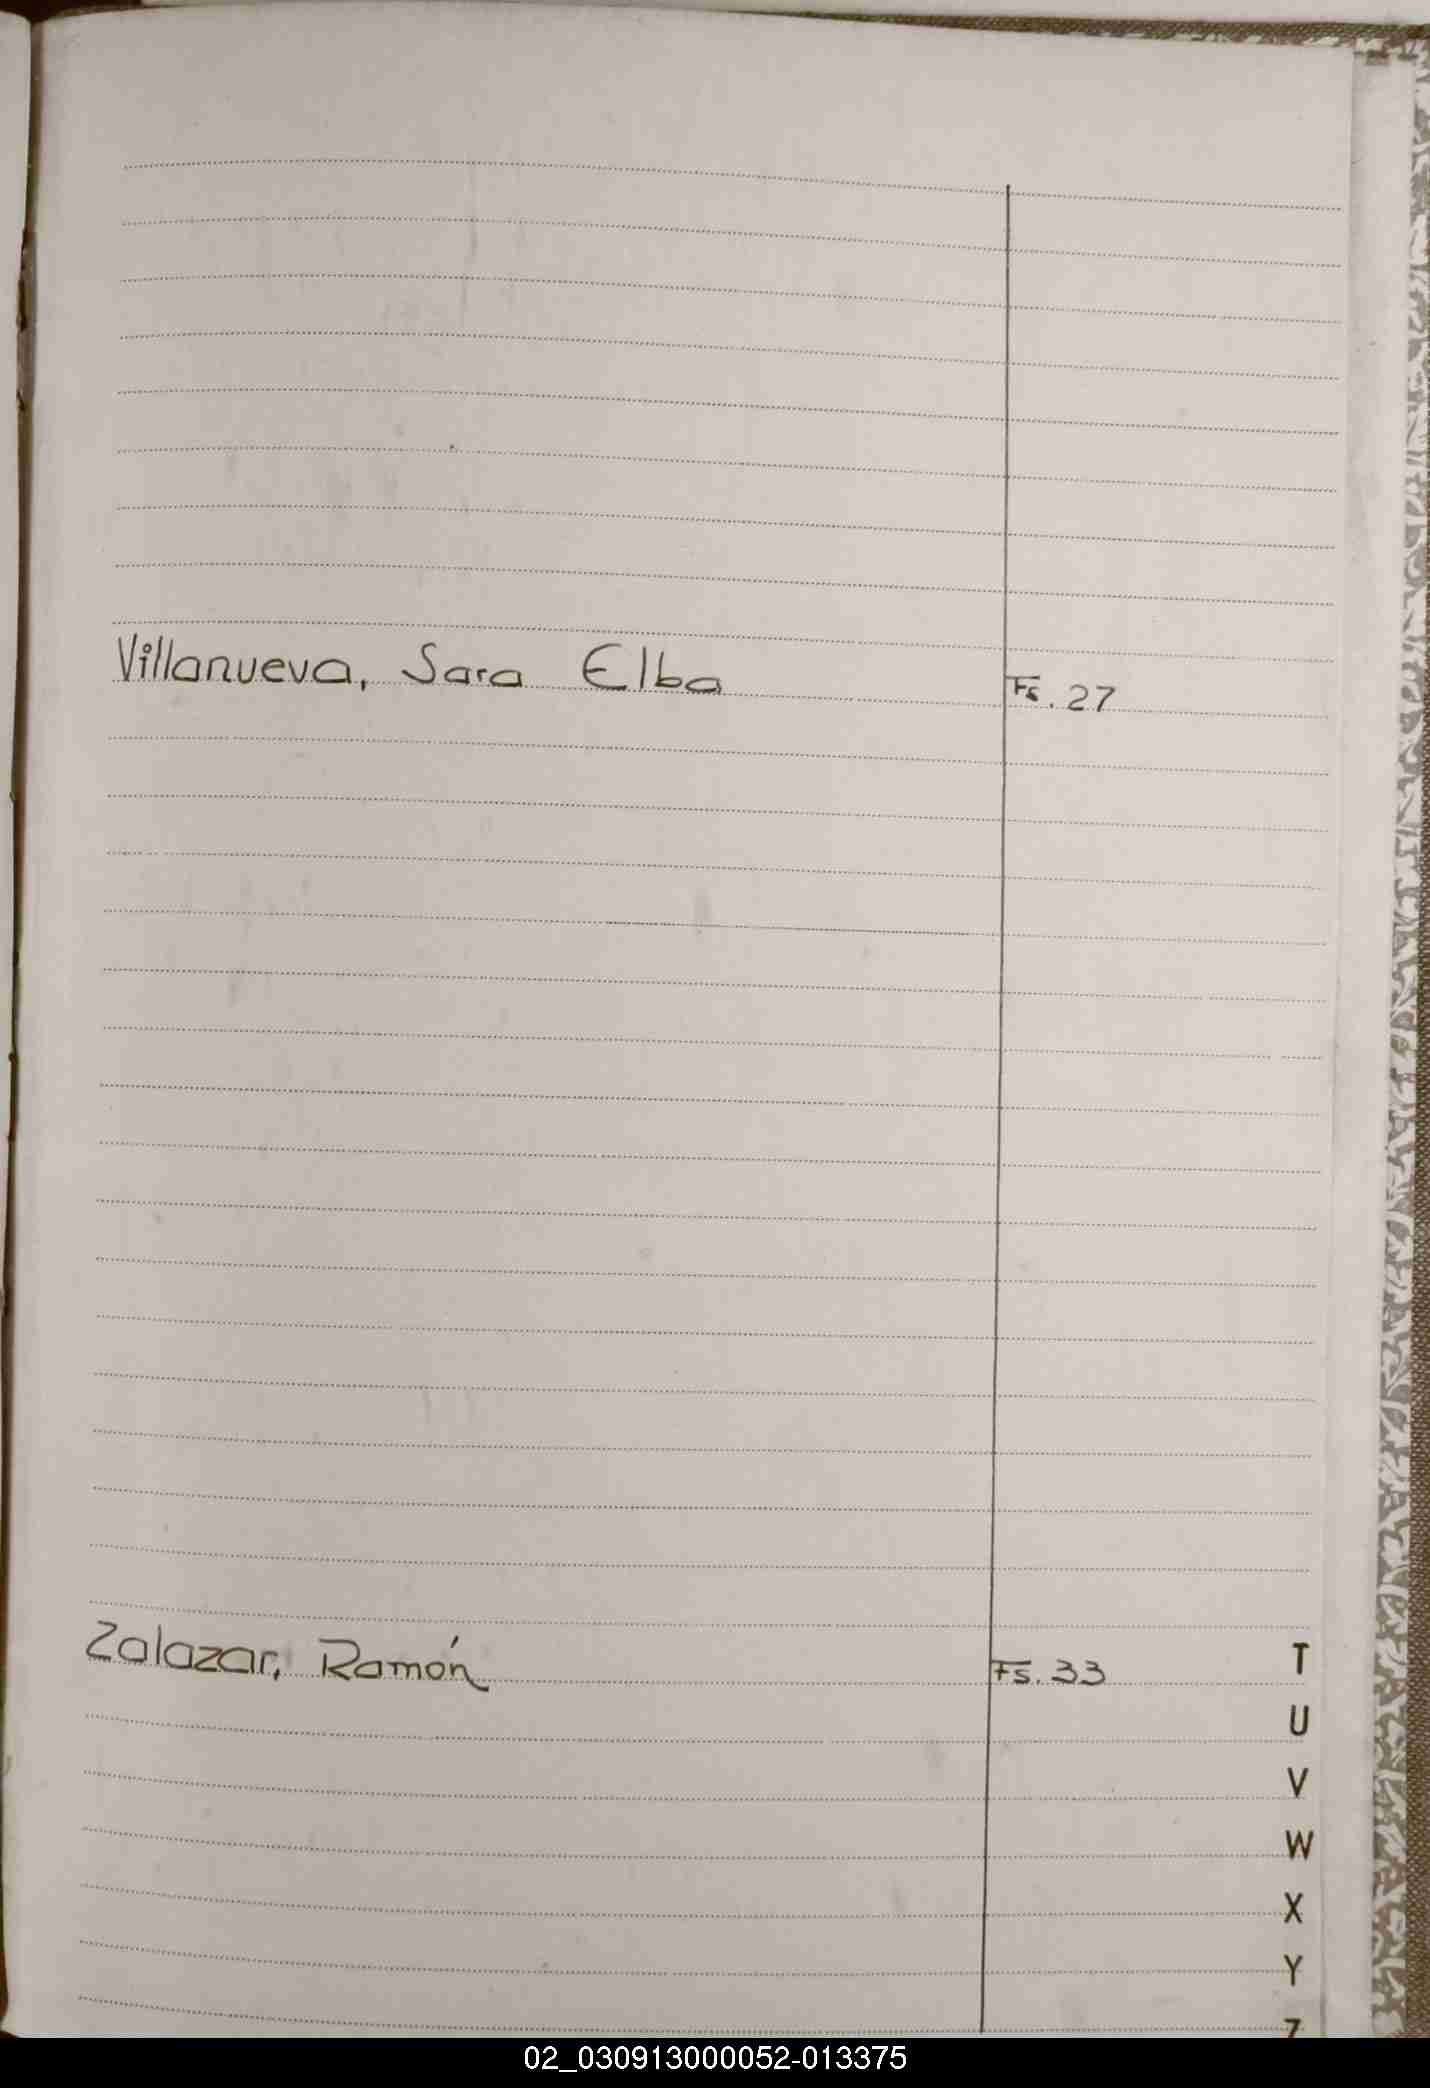 Villanueva, Sara Elba Fs. 27
Zalazar, Ramón Fs. 33
T
U
V
W
X
Y
Z
02_030913000052-013375